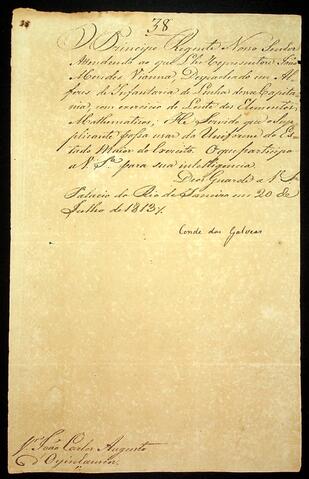 38
O Principe Regente Nosso Senhor
Attendendo ao que Lhe representou
Mendes Vianna, Despachado em Al-
feres de Infantaria de Linha dessa Capita-
nia, com exercicio de Lente dos Elementos
Mathematicos, He Servido que o Sup-
plicante possa usar do Uniforme do Es-
tado Maior do Exercito. O que participo
a V. Sª para sua intelligencia.
Deos Guarde a V. S.
Palacio do Rio de Janeiro em 20 de
Julho de 1813.
Conde das Galveas
Sr. João Carlos Augusto
d'Oyenhausen.